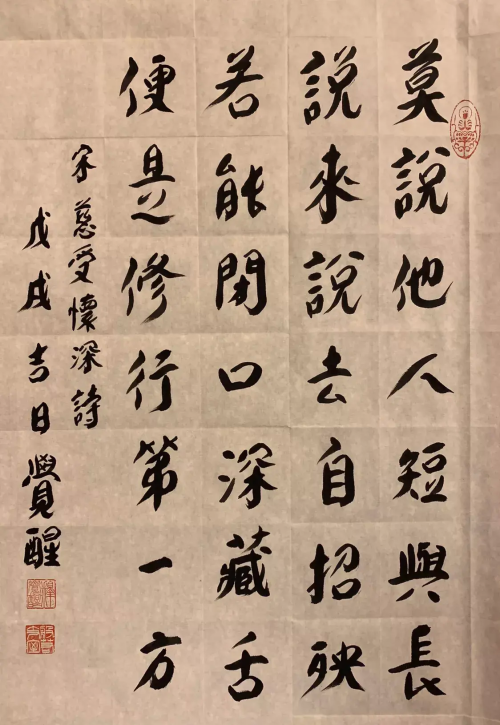 莫說他人短與長
說來說去自招殃
若能閉口深藏舌
便是修行第一方
宋慈受懷深詩
戊戌吉日覺醒